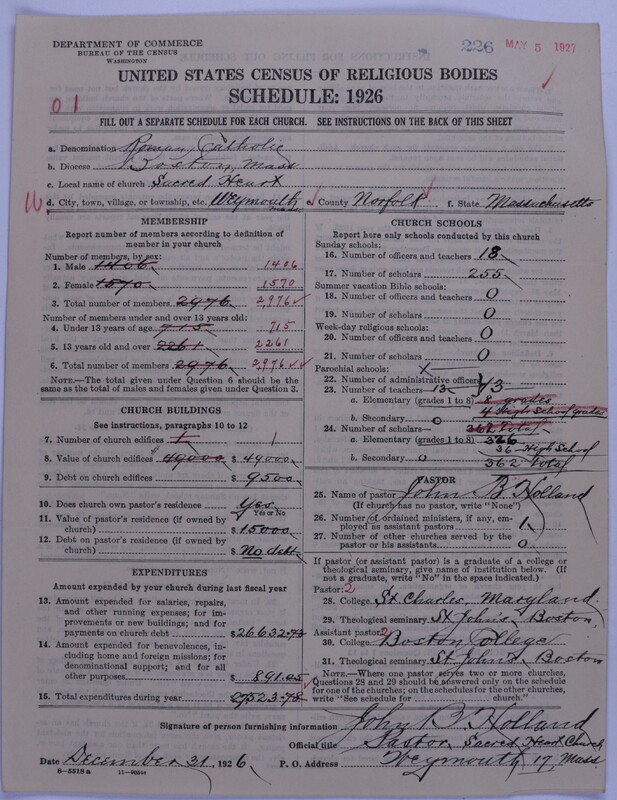 DEPARTMENT OF COMMERCE
BUREAU OF THE CENSUS
WASHINGTON
226 MAY 5 1927
UNITED STATES CENSUS OF RELIGIOUS BODIES
SCHEDULE: 1926
01
FILL OUT A SEPARATE SCHEDULE FOR EACH CHURCH. SEE INSTRUCTIONS ON THE BACK OF THIS SHEET
a. Denomination Roman Catholic
b. Diocese Boston, Mass
c. Local name of church Sacred Heart
d. City, town, village, or township, etc. Weymouth Mass. e. County Norfolk f. State Massachusetts
MEMBERSHIP
Report number of members according to definition of
member in your church
Number of members, by sex:
1. Male 1406 1406
2. Female 1570 1570
3. Total number of members 2976 2,976
Number of members under and over 13 years old:
4. Under 13 years of age 715 715
5. 13 years old and over 2261 2261
6. Total number of members 2976 2,976
NOTE.—The total given under Question 6 should be
the same as the total of males and females given under Question 3.
CHURCH BUILDINGS
See instructions, paragraphs 10 to 12
7. Number of church edifices 1 1
8. Value of church edifices 49000 $ 49000
9. Debt on church edifices $ 9500
10. Does church own pastor's residence? Yes
Yes or No
11. Value of pastor's residence (if owned by
church) $ 15000
12. Debt on pastor's residence (if owned by
church) $ No debt
EXPENDITURES
Amount expended by your church during last fiscal year
13. Amount expended for salaries, repairs,
and other running expenses; for im-
provements or new buildings; and for
payments on church debt $ 26632.73
14. Amount expended for benevolences,
including home and foreign missions; for
denominational support; and for all
other purposes $ 891.05
15. Total expenditures during year
CHURCH SCHOOLS
Report here only schools conducted by this church
Sunday schools:
16. Number of officers and teachers 18
17. Number of scholars 255
Summer vacation Bible schools:
18. Number of officers and teachers 0
19. Number of scholars 0
Week-day religious schools:
20. Number of officers and teachers 0
21. Number of scholars 0
Parochial schools: X
22. Number of administrative officers
23. Number of teachers 13 13
a. Elementary (grades 1 to 8) 8 grades
b. Secondary 0 4 High School grades
24. Number of scholars 362 Total
a. Elementary (grades 1 to 8) 326
36 High School
b. Secondary 0 362 Total
PASTOR
25. Name of pastor John B. Holland
(If church has no pastor, write "None")
26. Number of ordained ministers, if any, em-
ployed as assistant pastors 1
27. Number of other churches served by the
pastor or his assistants 0
If pastor (or assistant pastor) is a graduate of a college or
theological seminary, give name of institution below. (If
not a graduate, write "No" in the space indicated.)
Pastor: 2
28. College St Charles, Maryland
29. Theological seminary St John's Boston
Assistant pastor: 2
30. College Boston College
31. Theological seminary St Johns Boston
NOTE.—Where one pastor serves two or more churches,
Questions 28 and 29 should be answered only on the schedule
for one of the churches; on the schedules for the other churches,
write "See schedule for church."
Signature of person furnishing information John B. Holland
Official title Pastor Sacred Heart Church
Date December 31, 1926. P. O. Address Weymouth 17 Mass.
8—5518 a 11—90544